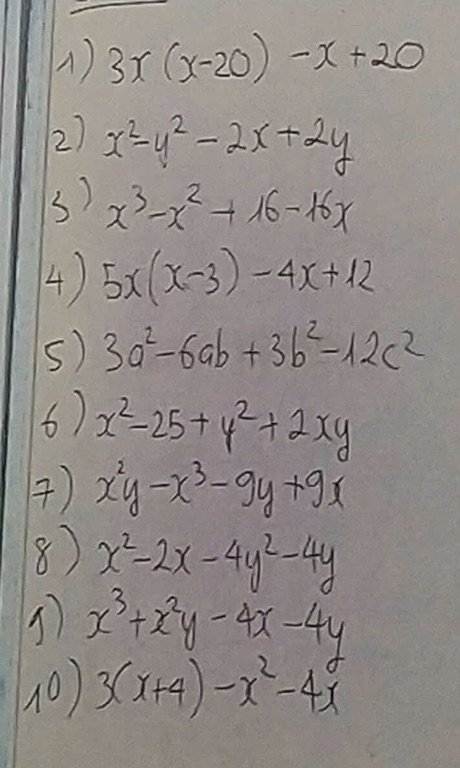 1) 3x(x-20) -x+20
2) x²-y² - 2x+2y
3) x³-x² + 16-16x
4) 5x(x-3) -4x+12
5) 3a²-6ab+3b²-12c²
6) x²-25+y²+2xy
7) x²y-x³-9y+9x
8) x²-2x-4y²-4y
9) x³+x²y-4x-4y
10) 3(x+4)-x²-4x